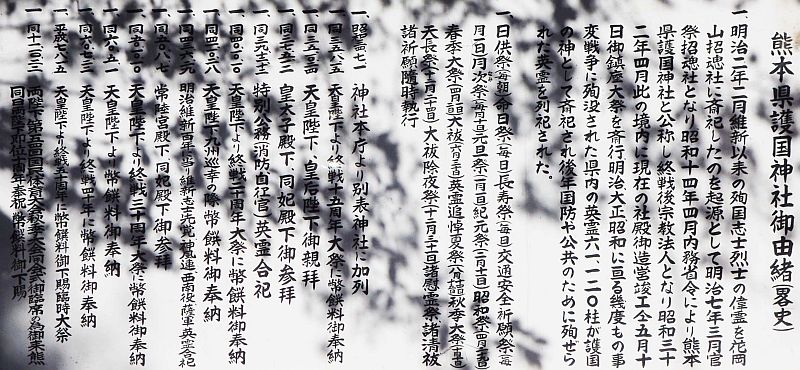 熊本県護国神社御由緒(畧史)
一、明治二年二月維新以来の殉国志士烈士の偉霊を花岡
山招魂社に斎祀したのを起源として明治七年三月官
祭招魂社となり昭和十四年四月内務省令により熊本
県護国神社と公称し終戦後宗教法人となり昭和三十
二年四月此の境内に現在の社殿御造営竣工仝五月十
日御鎮座大祭を斎行明治大正昭和に亘る幾度もの事
変戦争に殉没された県内の英霊六一一二〇柱が護国
の神として斎祀され後年国防や公共のために殉ぜら
れた英霊を列祀された。
一、日供祭(毎朝)命日祭(毎日)長寿祭(毎日)交通安全祈願祭(毎
月一日)月次祭(毎月十日)元旦祭(一月一日)紀元祭(二月十一日)昭和祭(四月廿九日)
春季大祭 大祓(六月三十日)英霊追悼夏祭 秋季大祭
天長祭(十二月廿三日)大祓除夜祭(十二月三十一日)諸慰霊祭諸清祓
諸祈願随時執行
一、昭 神社本庁より別表神社に加列
一、同三五 天皇陛下より終戦十五周年大祭に幣饌料御奉納
一、同 天皇陛下、皇后陛下御親拝
一、同 皇太子殿下、同妃殿下御参拝
一、同 特別公務(消防自衛官)英霊合祀
一、同 天皇陛下より終戦二十周年大祭に幣饌料御奉納
一、同 天皇陛下九州巡幸の際幣饌料御奉納
一、同 明治維新百年に当り維新志士先覚神風連西南役薩軍英霊合祀
一、同 常陸宮殿下、同妃殿下御参拝
一、同 天皇陛下より終戦三十周年大祭に幣饌料御奉納
一、同 天皇陛下より幣饌料御奉納
一、同 天皇陛下より終戦四十年に幣饌料御奉納
一、平成七八五 天皇陛下より終戦五十周年に幣饌料御下賜臨時大祭
一、同 両陛下 御臨席の為御来熊
同日陛下御即位十周年奉祝幣饌料御下賜